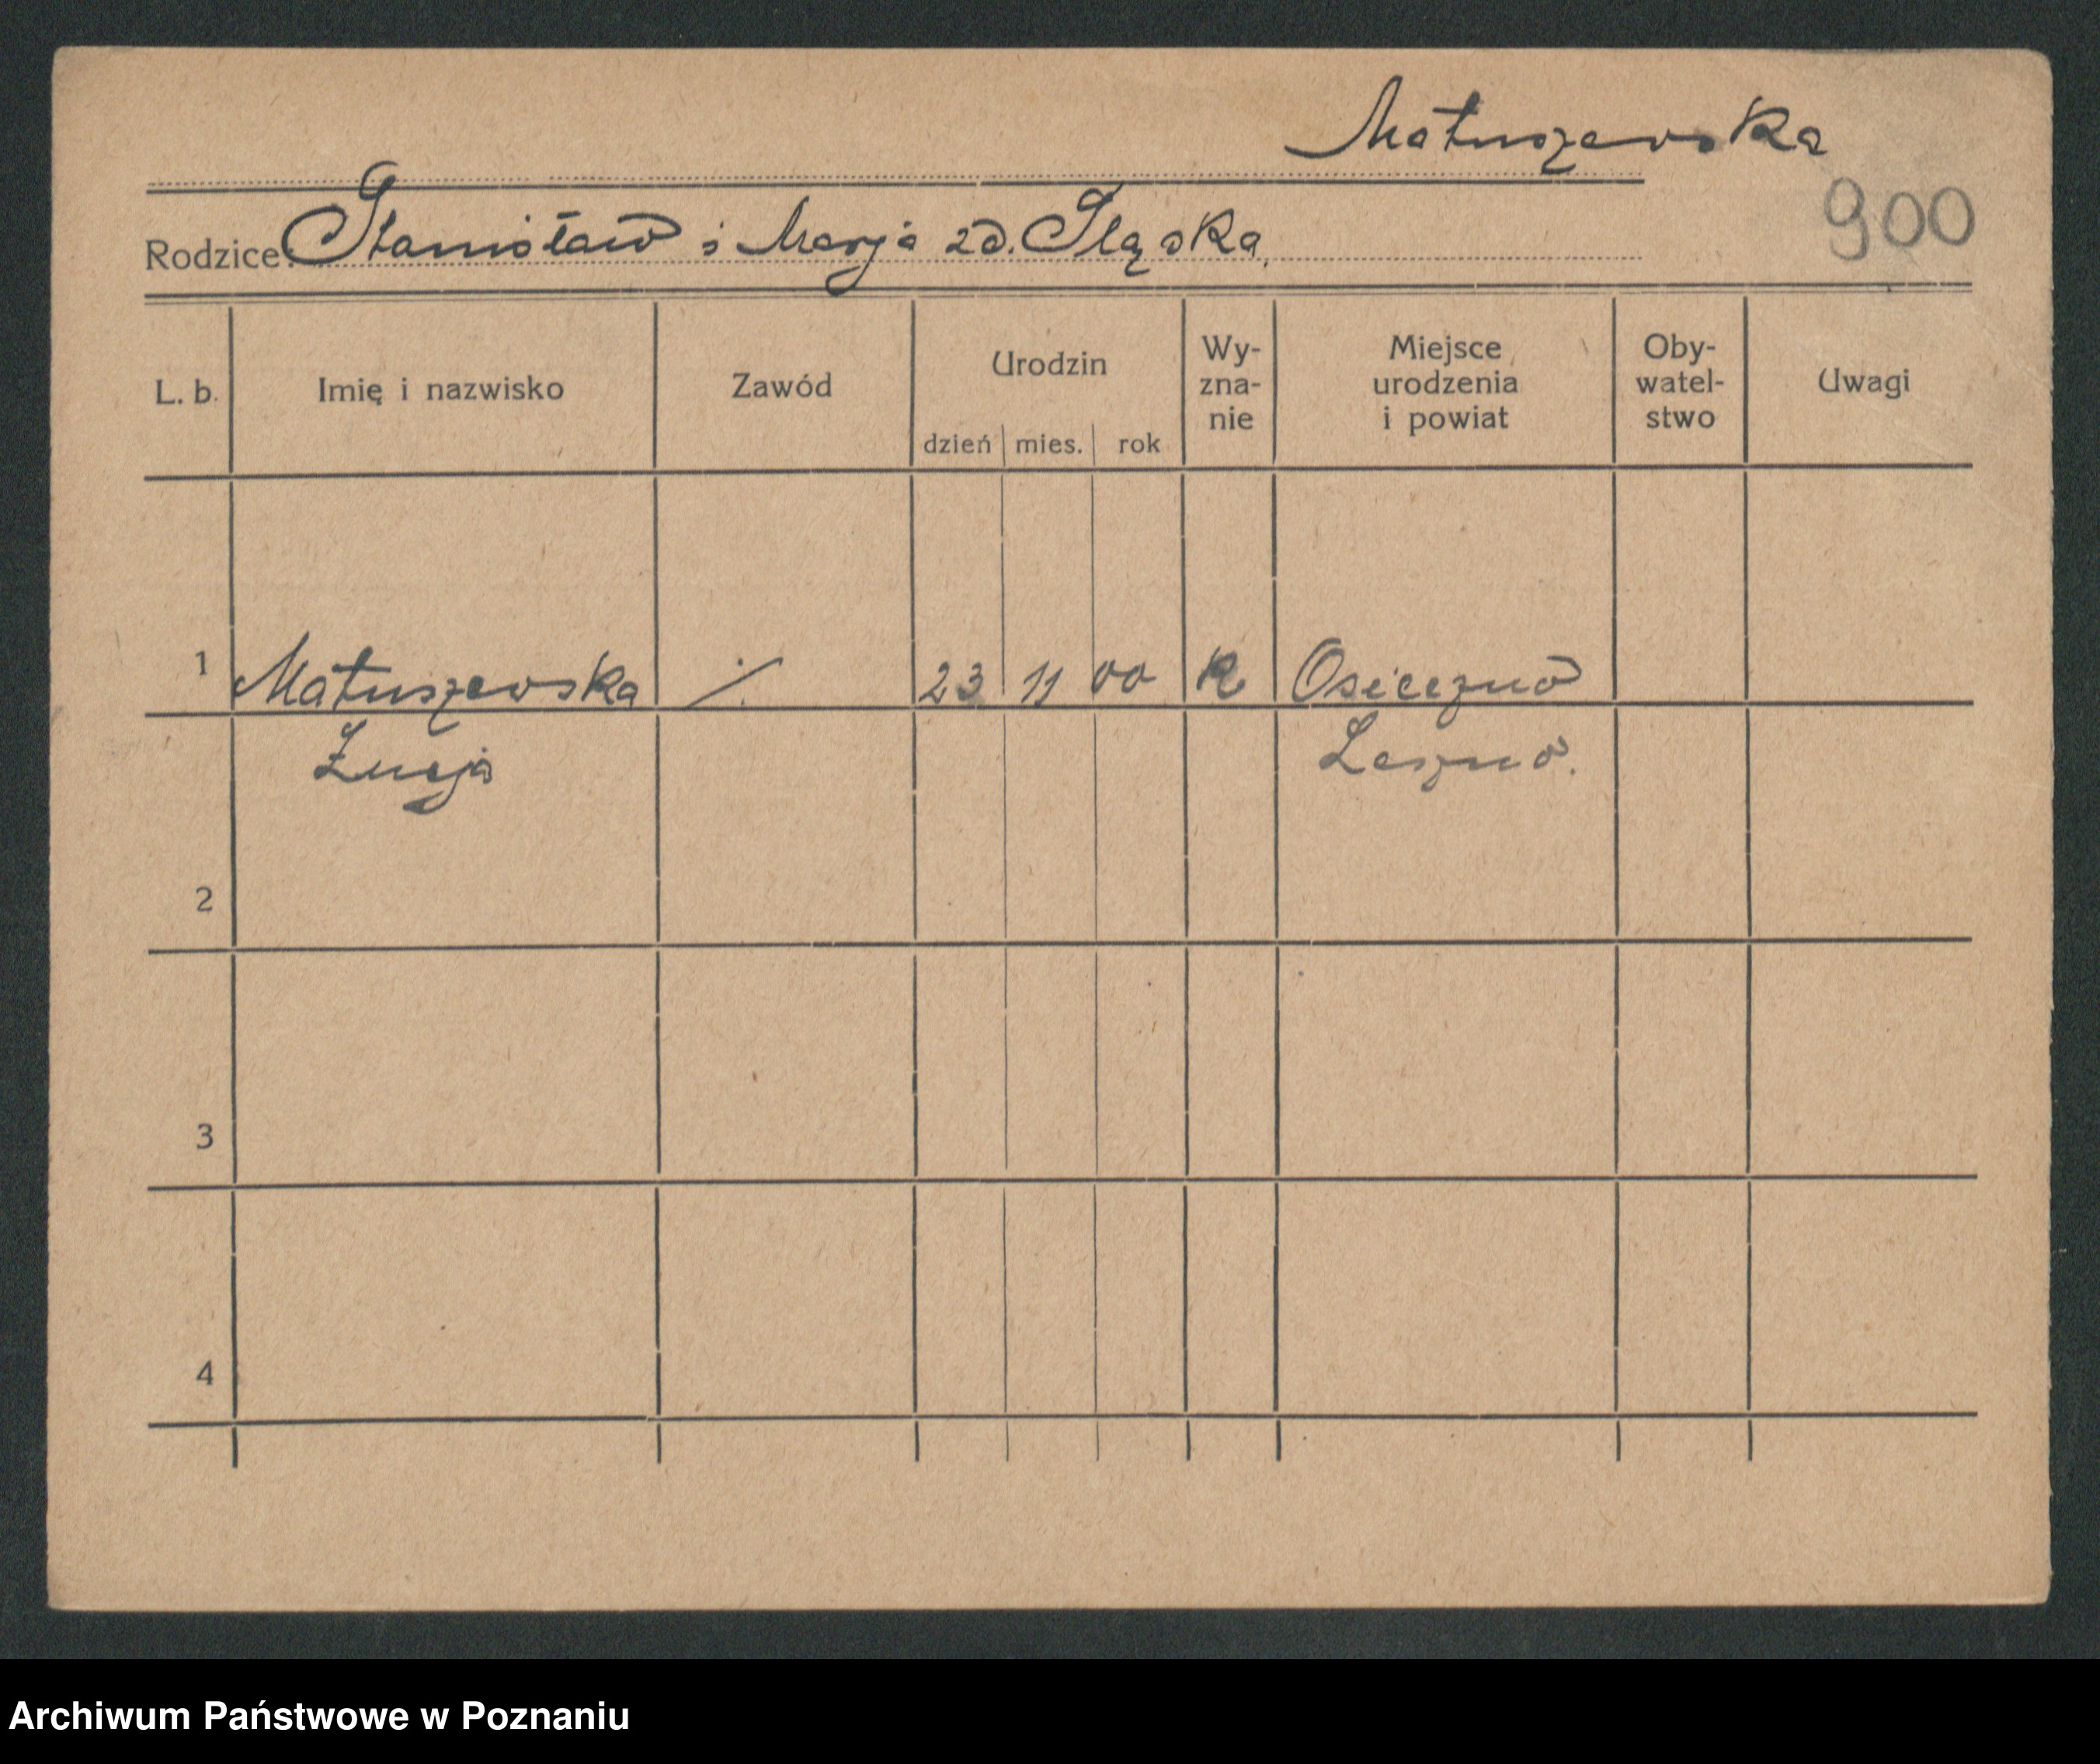 Matuszewska
Rodzice: Stanisław i Marja zd. Śląska,
900
L. b. Imię i nazwisko Zawód Urodzin dzień mies. rok Wy-zna-nie Miejsce urodzenia i powiat Oby-watel-stwo Uwagi
1 Matuszewska ./. 23 11 00 K Osieczno
Łucja Leszno.
2
3
4
Archiwum Państwowe w Poznaniu